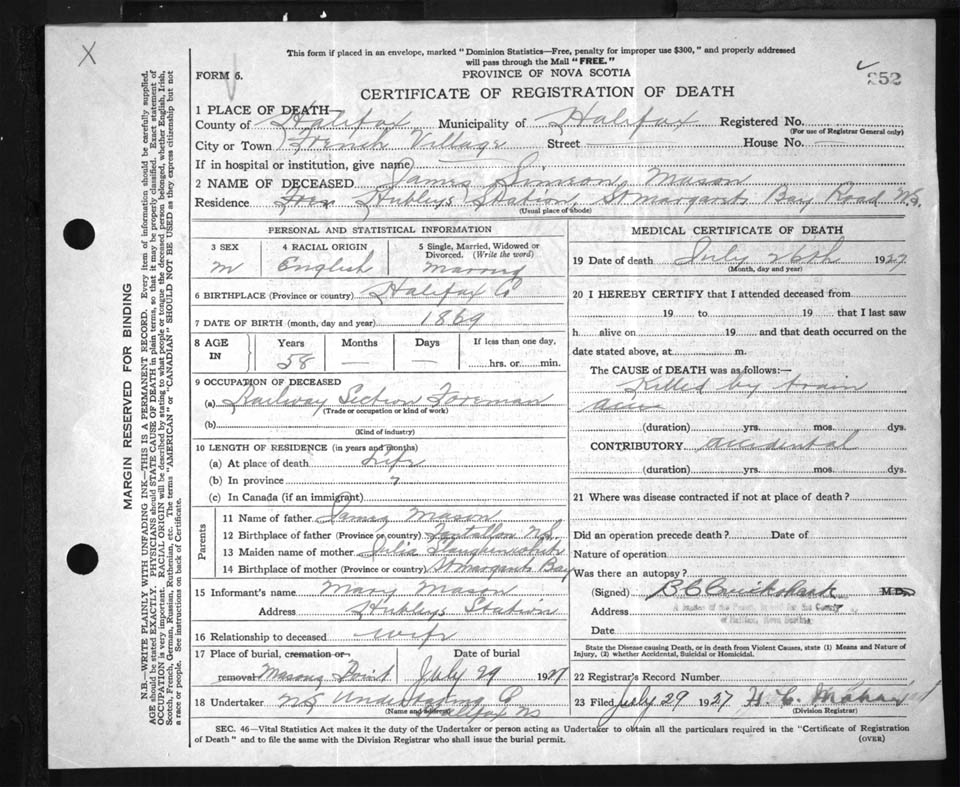 X
This form if placed in an envelope, marked "Dominion Statistics—Free, penalty for improper use $300," and properly addressed
will pass through the Mail "FREE."
FORM 6.
PROVINCE OF NOVA SCOTIA
252
CERTIFICATE OF REGISTRATION OF DEATH
1 PLACE OF DEATH—
County of Halifax Municipality of Halifax Registered No.
(For use of Registrar General only)
City or Town French Village Street — House No. —
If in hospital or institution, give name)
2 NAME OF DECEASED James Simeon Mason
Residence Hubleys Station, St Margarets Bay Road N.S.
(Usual place of abode)
PERSONAL AND STATISTICAL INFORMATION
3 SEX
4 RACIAL ORIGIN
5 Single, Married, Widowed or
Divorced. (Write the word)
M English
6 BIRTHPLACE (Province or country) Halifax Co
7 DATE OF BIRTH (month, day and year) 1869
8 AGE IN
Years Months Days If less than one day,
58 — — hrs. or min.
9 OCCUPATION OF DECEASED
(a) Railway Section Foreman
(Trade or occupation or kind of work)
(b)
(Kind of industry)
10 LENGTH OF RESIDENCE (in years and months)
(a) At place of death life
(b) In province "
(c) In Canada (if an immigrant)
Parents
11 Name of father James Mason
12 Birthplace of father (Province or country) Tantallon N.S.
13 Maiden name of mother Julia
14 Birthplace of mother (Province or country) St Margarets Bay
15 Informant's name Mary Mason
Address Hubleys Station
16 Relationship to deceased wife
17 Place of burial, cremation or removal Masons Point
Date of burial July 29 1927
18 Undertaker NS Undertaking Co
(Name and address) Halifax NS
MEDICAL CERTIFICATE OF DEATH
19 Date of death July 26th 1927
(Month, day and year)
20 I HEREBY CERTIFY that I attended deceased from
19 to 19 that I last saw
h alive on 19 and that death occurred on the
date stated above, at m.
The CAUSE of DEATH was as follows:—
Killed by train
(duration) yrs. mos. dys.
CONTRIBUTORY accidental
(duration) yrs. mos. dys.
21 Where was disease contracted if not at place of death?
Did an operation precede death? Date of
Nature of operation
Was there an autopsy?
(Signed) B C Cruickshank M.D.
Address
Date
State the Disease causing Death, or in death from Violent Causes, state (1) Means and Nature of
Injury, (2) whether Accidental, Suicidal or Homicidal.
22 Registrar's Record Number
23 Filed July 29 1927 H. C.
(Division Registrar)
SEC. 46—Vital Statistics Act makes it the duty of the Undertaker or person acting as Undertaker to obtain all the particulars required in the "Certificate of Registration
of Death" and to file the same with the Division Registrar who shall issue the burial permit.
(OVER)
MARGIN RESERVED FOR BINDING
N.B.—WRITE PLAINLY WITH UNFADING INK—THIS IS A PERMANENT RECORD. Every item of information should be carefully supplied.
AGE should be stated EXACTLY. PHYSICIANS should STATE CAUSE OF DEATH in plain terms, so that it may be properly classified. Exact statement of
OCCUPATION is very important. RACIAL ORIGIN will be described by stating to what people or tongue the deceased person belonged, whether English, Irish,
Scotch, French, German, Russian, Ruthenian, etc. The terms "AMERICAN" or "CANADIAN" SHOULD NOT BE USED as they express citizenship but not
a race or people. See instructions on back of Certificate.